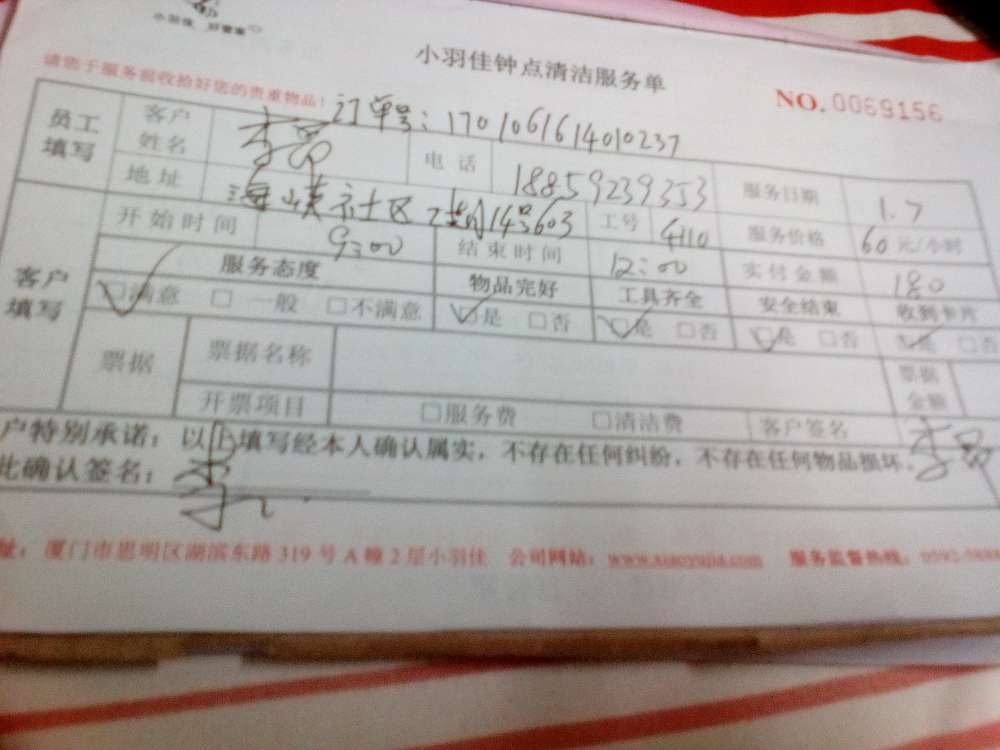 小羽佳 好管家
小羽佳钟点清洁服务单
请您于服务前收拾好您的贵重物品!
NO.0069156
订单号:1701061614010237
员工填写 客户姓名 李 电话 18859239353 服务日期 1.7
地址 海峡社区 14号603 工号 4110 服务价格 60元/小时
客户填写 开始时间 9:00 结束时间 12:00 实付金额 180
服务态度 物品完好 工具齐全 安全结束 收到卡片
□满意 □一般 □不满意 □是 □否 □是 □否 □是 □否 □是 □否
票据 票据名称 票据金额
开票项目 □服务费 □清洁费 客户签名 李
户特别承诺:以上填写经本人确认属实,不存在任何纠纷,不存在任何物品损坏。
此确认签名:李
址:厦门市思明区湖滨东路319号A幢2层小羽佳 公司网站:www.xiaoyujia.com 服务监督热线:0592-